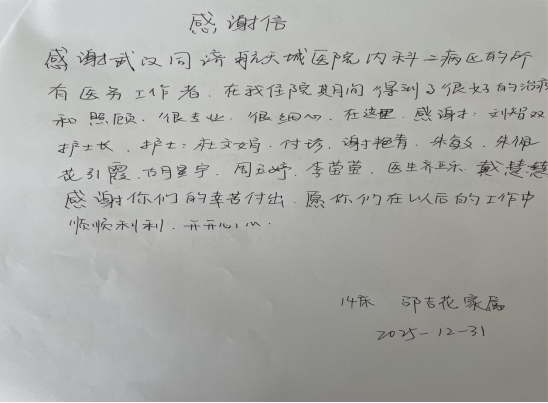 感谢信
感谢武汉同济航天城医院内科二病区的所
有医务工作者，在我住院其间得到了很好的治疗
和照顾．很专业．很细心．在这里．感谢：刘智双
护士长．护士：杜文娟．付诊．谢艳青．朱敏．朱佩
花引霞．胡星宇．周玉婷．李萤萤．医生齐亚乐．戴慧慧
感谢你们的辛苦付出．愿你们在以后的工作中
顺顺利利．开开心心．
14床 邵吉花家属
2025-12-31